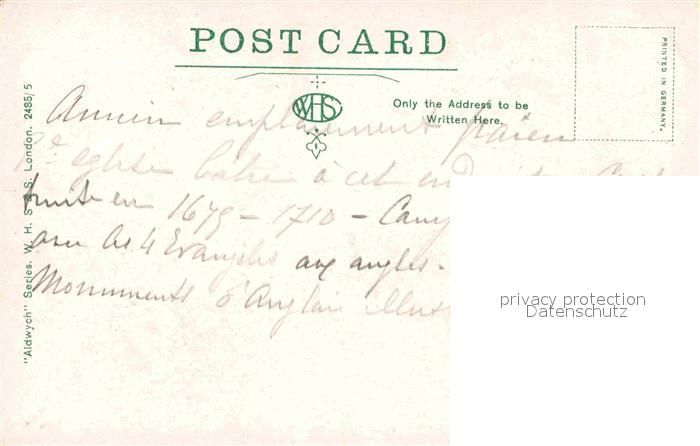 POST CARD
WHS
Only the Address to be
Written Here.
PRINTED IN GERMANY.
"Aldwych" Series. W. H. S. & S. London. 2485/5
Ancien emplacement païen
2e eglise batie à cet
truite en 1675 - 1710 -
avec les 4 Evangiles aux angles -
Monuments d'Anglais illus
privacy protection
Datenschutz